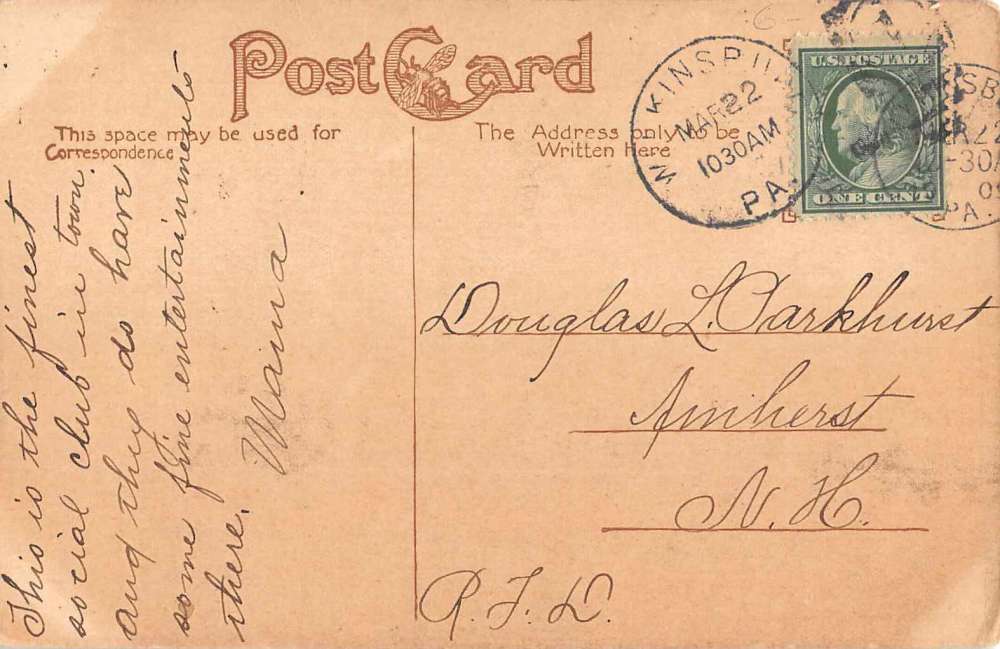 Post Card
This space may be used for
Correspondence
The Address only to be
Written here
W KINSBU
MAR 22
1030AM
PA.
U.S. POSTAGE
ONE CENT
SB
R 22
-30A
PA.
This is the finest
social club in town
and they do have
some fine entertainments
there.
Mama
Douglas L. Parkhurst
Amherst
N. H.
R. F. D.